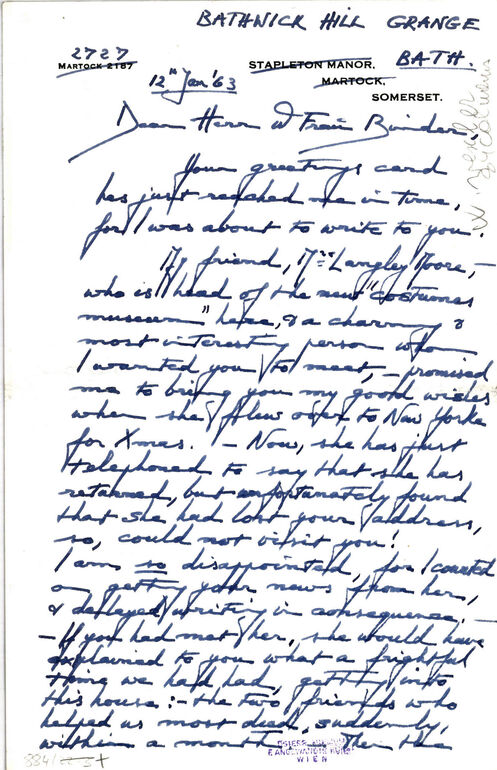 BATHWICK HILL GRANGE
2727
BATH.
MARTOCK 2187
STAPLETON MANOR,
MARTOCK,
SOMERSET.
12th Jan '63
Dear Herr & Frau Binder,
Your greetings card
has just reached me in time,
for I was about to write to you.
My friend, Mrs Langley Moore, –
who is head of the new "costumes
museum" here, & a charming &
most interesting person whom
I wanted you to meet, – promised
me to bring you my good wishes
when she flew over to New Yorke
for Xmas. – Now, she has just
telephoned to say that she has
returned, but unfortunately found
that she had lost your address,
so, could not visit you!
I am so disappointed, for I counted
on getting your news from her,
& delayed writing in consequence. –
– If you had met her, she would have
explained to you what a frightful
time we had had, getting into
this house: – the two friends who
helped us most died, suddenly,
within a month – then the
WIEN